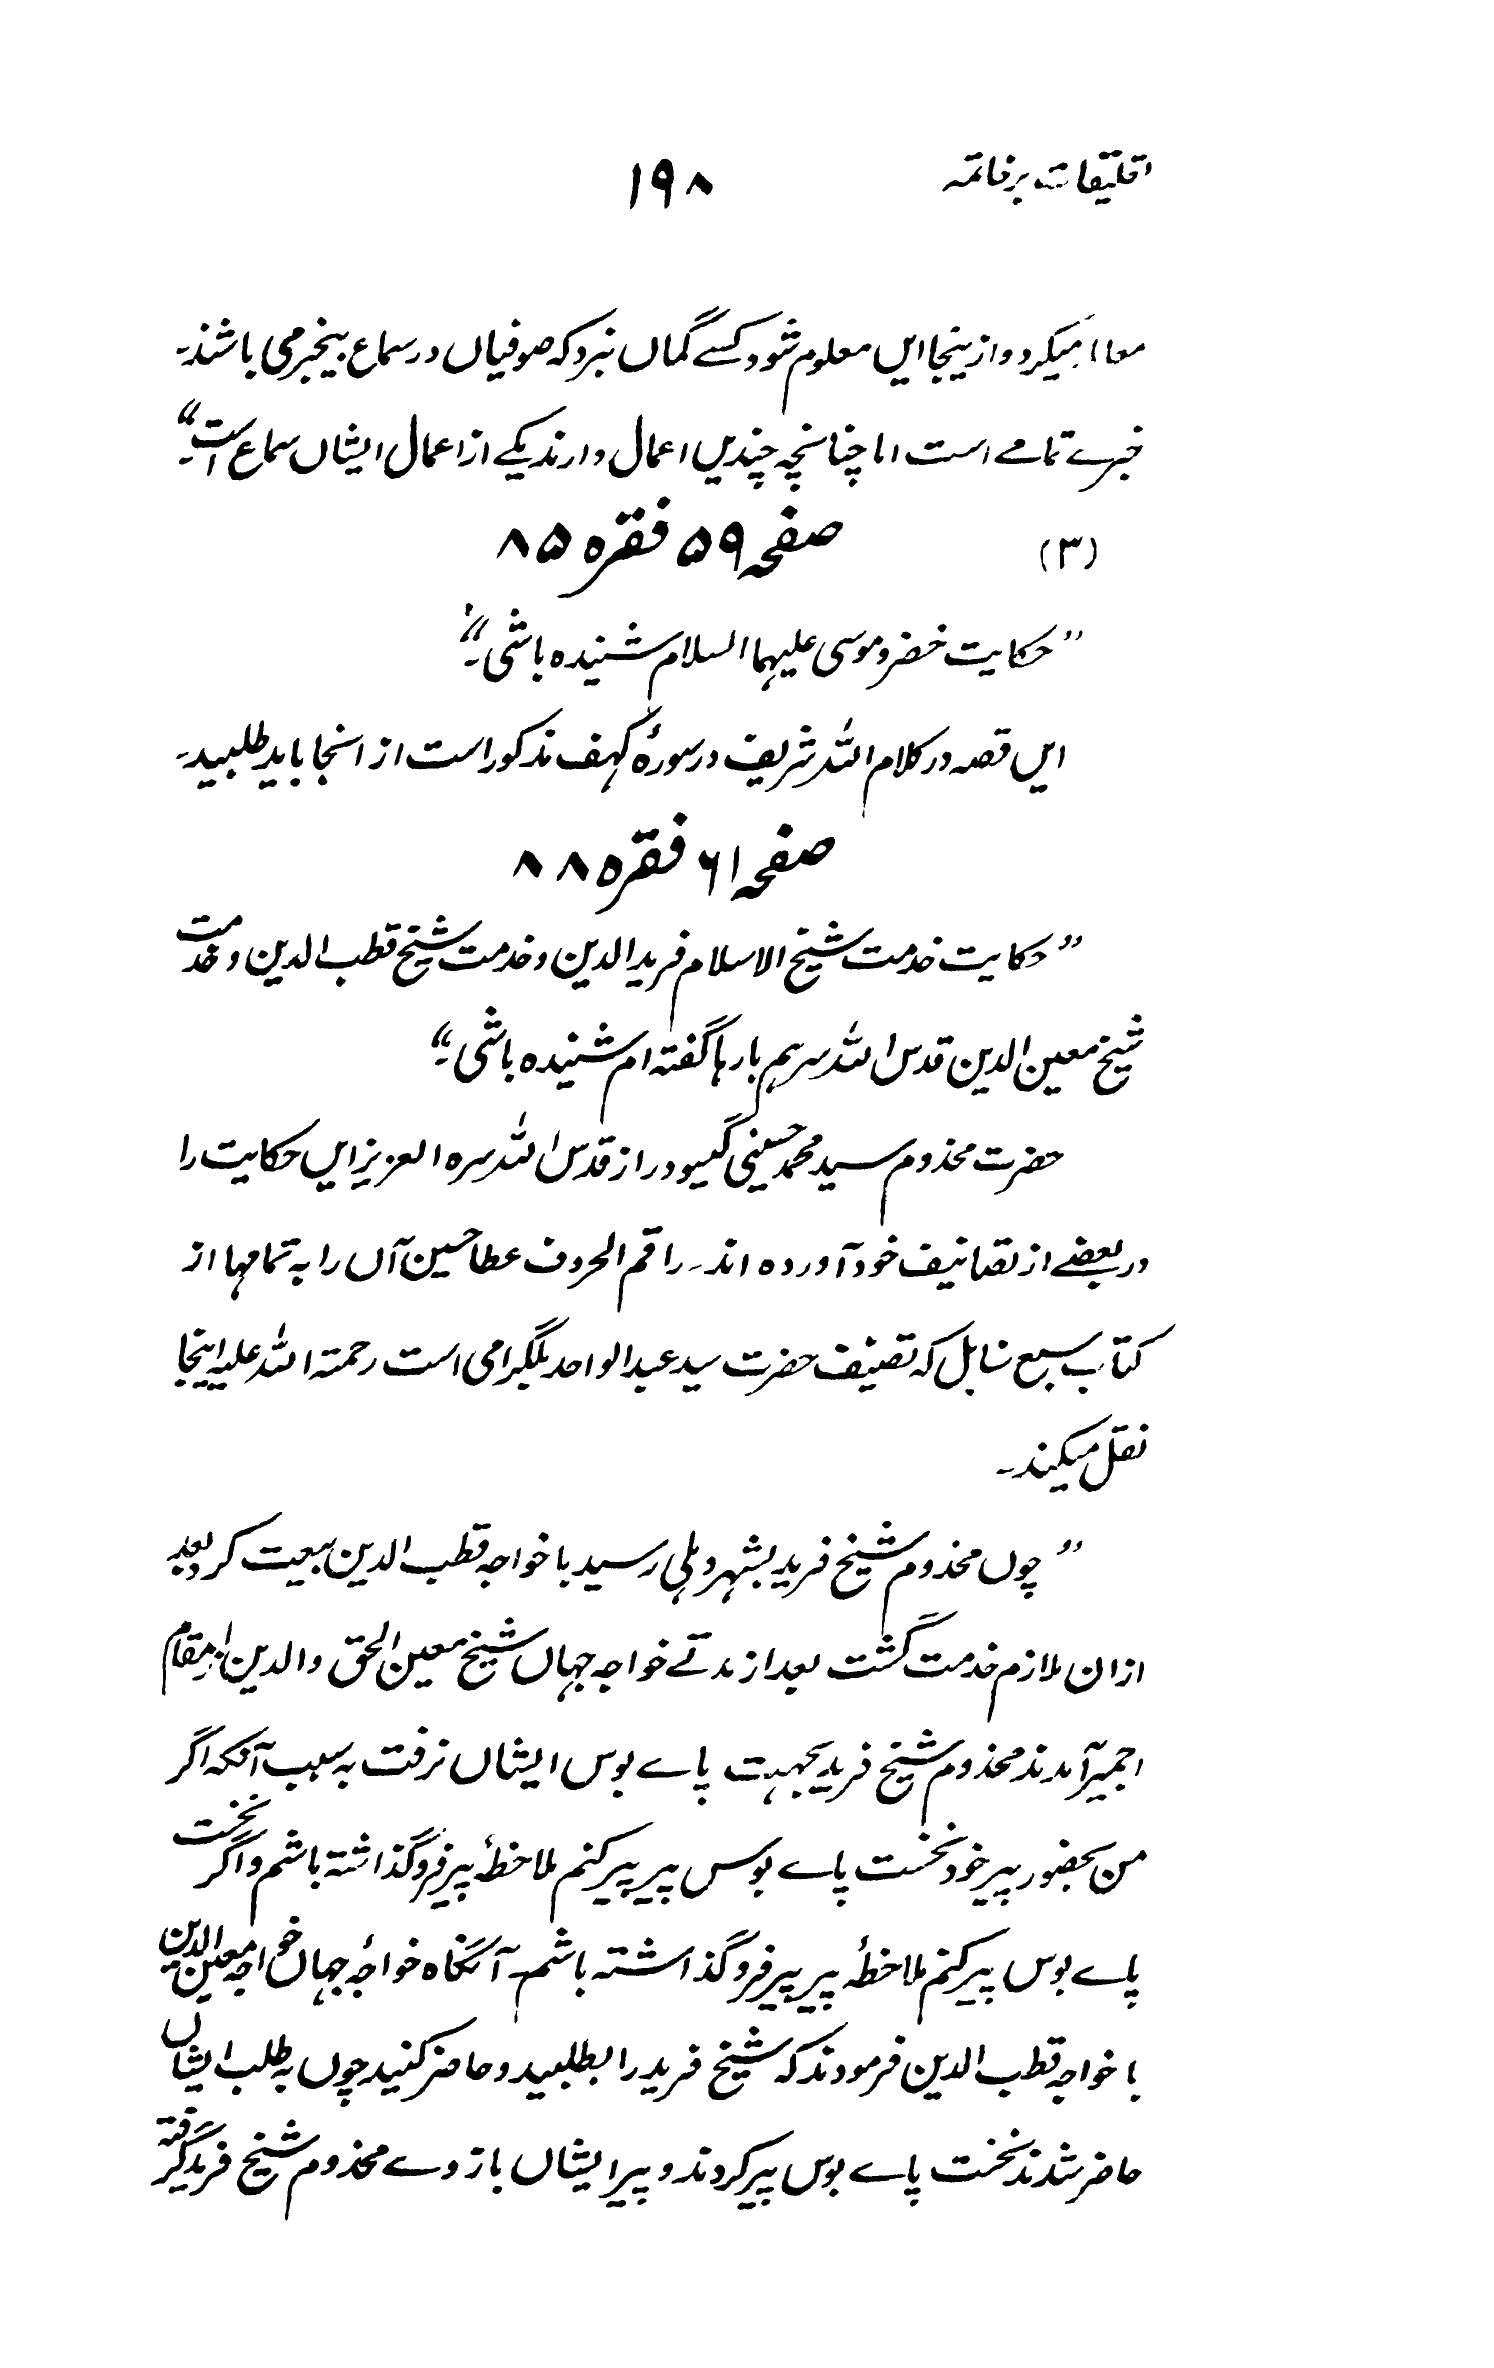 تعلیقات برخاتمہ ۱۹۸
معاا میکرد و ازینجا ایں معلوم شود کسے گماں نبرد کہ صوفیاں در سماع بیخبر می باشند۔
خبرے تمامے است اما چنانچہ چندیں اعمال دارند یکے از اعمال ایشاں سماع است۔“
(۳) صفحہ ۵۹ فقرہ ۸۵
”حکایت خضر و موسی علیہما السلام شنیدہ باشی۔“
ایں قصہ در کلام اللہ شریف در سورۂ کہف مذکور است از انجا باید طلبید۔
صفحہ ۶۱ فقرہ ۸۸
”حکایت خدمت شیخ الاسلام فرید الدین و خدمت شیخ قطب الدین و خدمت
شیخ معین الدین قدس اللہ سرہم بارہا گفتہ ام شنیدہ باشی۔“
حضرت مخدوم سید محمد حسینی گیسو دراز قدس اللہ سرہ العزیز ایں حکایت را
در بعضے از تصانیف خود آوردہ اند۔ راقم الحروف عطا حسین آں را بہ تمامہا از
کتاب سبع سنابل کہ تصنیف حضرت سید عبد الواحد بلگرامی است رحمتہ اللہ علیہ اینجا
نقل میکند۔
”چوں مخدوم شیخ فرید بشہر دہلی رسید با خواجہ قطب الدین بیعت کرد بعد
ازان ملازم خدمت گشت بعد از مدتے خواجہ جہاں شیخ معین الحق والدین از مقام
اجمیر آمدند مخدوم شیخ فرید بجہت پاے بوس ایشاں نرفت بہ سبب آنکہ اگر
من بحضور پیر خود نخست پاے بوس پیر پیر کنم ملاحظۂ پیر فروگذاشتہ باشم و اگر نخست
پاے بوس پیر کنم ملاحظۂ پیر پیر فروگذاشتہ باشم۔ آنگاہ خواجۂ جہاں خواجہ معین الدین
با خواجہ قطب الدین فرمودند کہ شیخ فرید را بطلبید و حاضر کنید چوں بہ طلب ایشاں
حاضر شدند نخست پاے بوس پیر کردند و پیر ایشاں بازوے مخدوم شیخ فرید گرفتہ